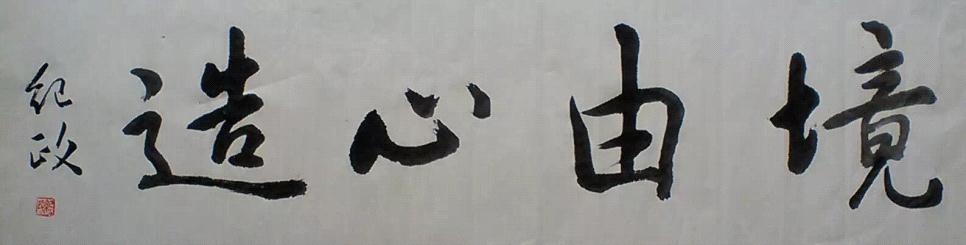 境由心造
紀政